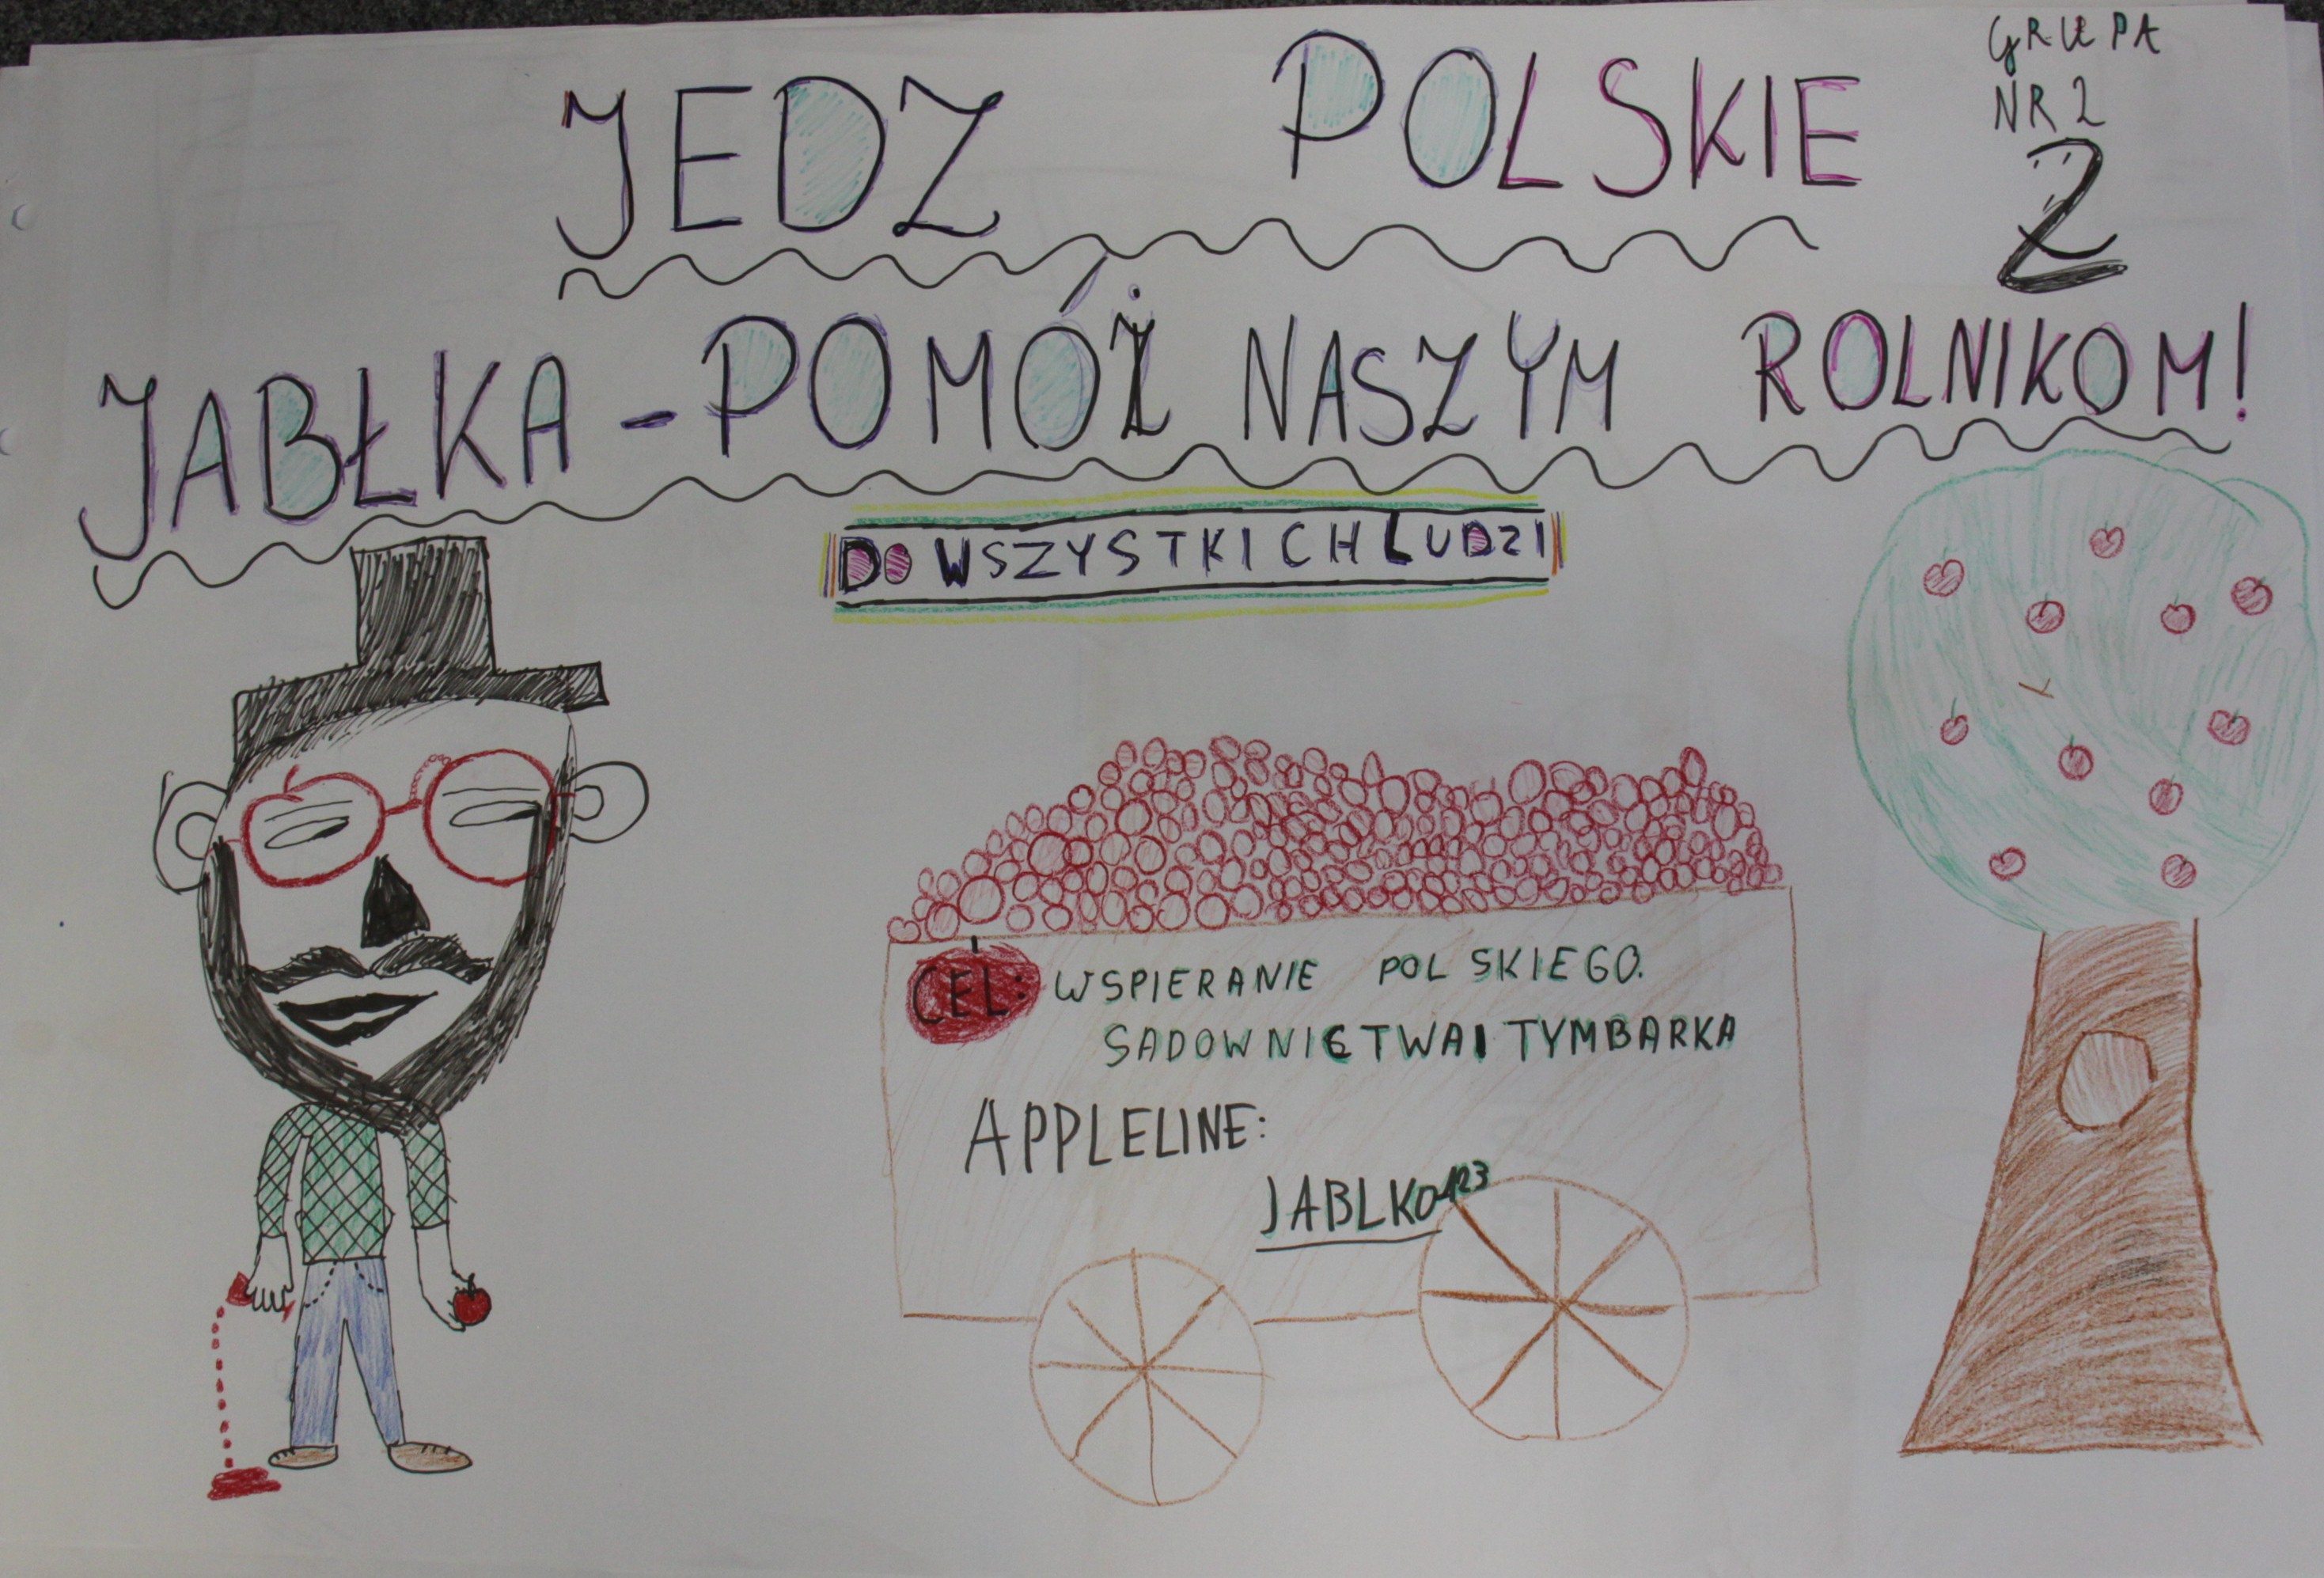 GRUPA
NR 2
2
JEDZ POLSKIE
JABŁKA - POMÓŻ NASZYM ROLNIKOM!
DO WSZYSTKICH LUDZI
CEL: WSPIERANIE POLSKIEGO.
SADOWNICTWA I TYMBARKA
APPLELINE:
JABLKO123